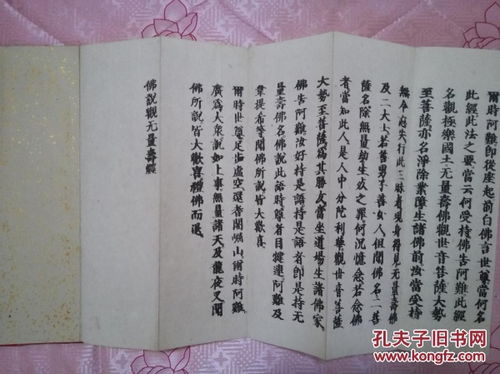 爾時阿難即從座起前白佛言世尊當何名
此經此法之要當云何受持佛告阿難此經
名觀極樂國土无量壽佛觀世音菩薩大勢
至菩薩亦名淨除業障生諸佛前汝當受持
無令忘失行此三昧者現身得見无量壽佛
及二大士若善男子善女人但聞佛名二菩
薩名除無量劫生死之罪何況憶念若念佛
者當知此人是人中分陀利華觀世音菩薩
大勢至菩薩為其勝友當坐道場生諸佛家
佛告阿難汝好持是語持是語者即是持无
量壽佛名佛說此語時尊者目揵連阿難及
韋提希等聞佛所說皆大歡喜
爾時世尊足步虛空還耆闍崛山爾時阿難
廣為大衆說如上事無量諸天及龍夜叉聞
佛所說皆大歡喜禮佛而退
佛說觀无量壽經
孔夫子旧书网
www.kongfz.com